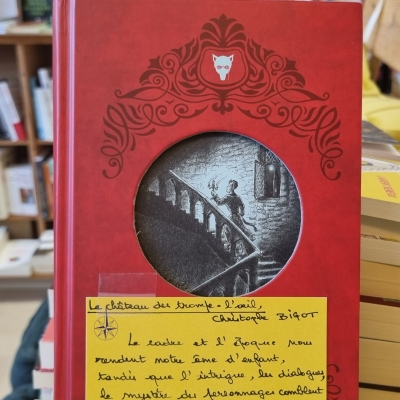 Le château des trompe-l'œil,
Christophe BIGOT
Le cadre et l'époque nous
rendent notre âme d'enfant,
tandis que l'intrigue, les dialogues,
le mystère des personnages comblent